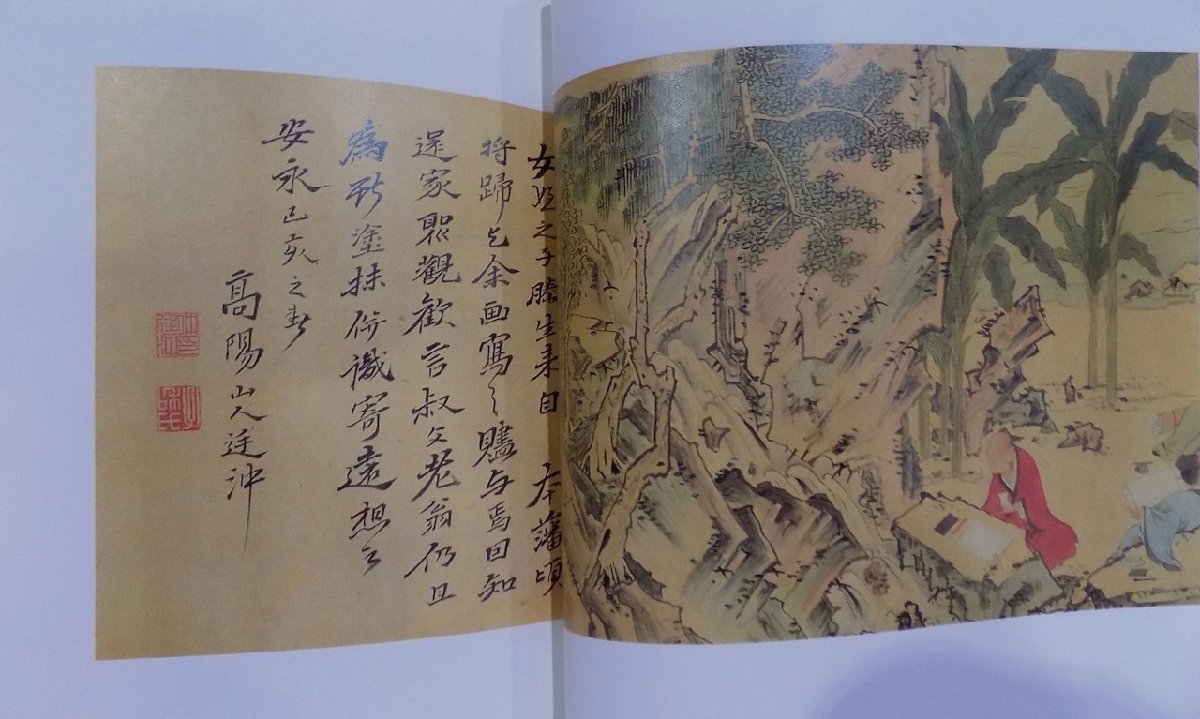 女姪之子勝生来自 本藩頃
将歸乞余画寫之贐与焉回知
還家聚觀歡言叔父老翁仍且
為斯塗抹併識寄遠想云
安永己亥之春
高陽山人廷沖